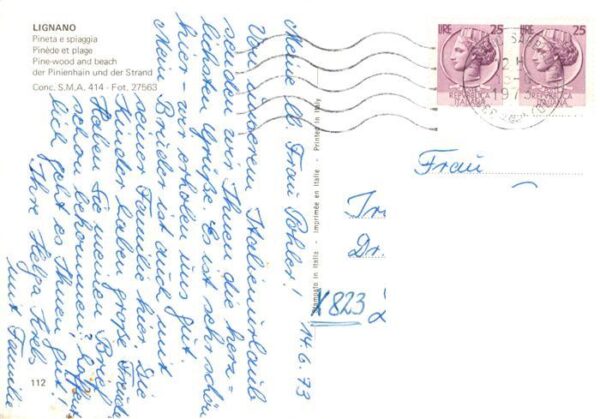 LIGNANO
Pineta e spiaggia
Pinède et plage
Pine-wood and beach
der Pinienhain und der Strand
Conc. S.M.A. 414 - Fot. 27563
14.6.73
Meine lb. Frau Pohler!
Von unserem Italienurlaub
senden wir Ihnen die herz-
lichsten Grüße. Es ist sehr schön
hier - wir erholen uns gut.
Mein Bruder ist auch mit
seiner Familie hier. Die
Kinder haben große Freude.
Haben Sie meinen Brief
schon bekommen? Hoffent-
lich geht es Ihnen gut!
Ihre Helga Krebs
mit Familie
112
Stampato in Italia - Imprimée en Italie - Printed in Italy
LIRE 25
LIRE 25
REPUBBLICA
ITALIANA
1973
Frau
Dr.
X823